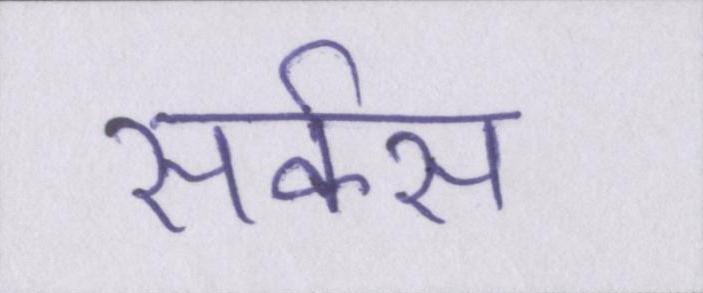 सर्कस